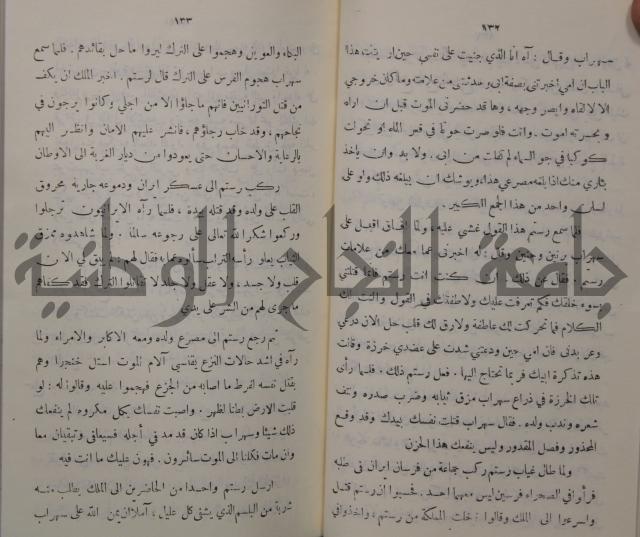 ١٣٢
سهراب وقال : آه انا الذي جنيت على نفسي حين اردت هذا
الباب ان امي اخبرتني بصفة ابي وحدثتني من علامته وما كان خروجي
الا لالقاه وابصر وجهه ، وها قد حضرني الموت قبل ان اراه
وبحسرته اموت . وانت فلو صرت حوتا في قعر الماء او تحولت
كوكبا في جو السماء لم تفلت من ابي . ولا بد وان ياخذ
بثاري منك اذا بلغه مصرعي هذا ويوشك ان يبلغه ذلك ولو على
لسان واحد من هذا الجمع الكبير .
فلما سمع رستم هذا القول غشي عليه ، ولما افاق اقبل على
سهراب برنين وحنين وقال : له اخبرني عما معك من علامات
رستم . فقال عن ذلك ان كنت انت رستم فاعلم انك قتلتني
بسوء خلقك فكم تعرفت عليك ولاطفتك في القول والنت لك
الكلام فما تحركت لك عاطفة ولا رق لك قلب حل الان درعي
وعر بدني فان امي حين ودعتني شدت على عضدي خرزة وقالت
هذه تذكرة ابيك فربما تحتاج اليها . فعل رستم ذلك . فلما رأى
تلك الخرزة في ذراع سهراب مزق ثيابه وضرب صدره ونتف
شعره وندب ولده . فقال سهراب قتلت نفسك بيدك وقد وقع
المحذور وفصل المقدور وليس ينفعك هذا الحزن
ولما طال غياب رستم ركب جماعة من فرسان ايران في طلبه
فرأوا في الصحراء فرسين ليس معهما احد . فحسبوا ان رستم قتل
واسرعوا الى الملك وقالوا : خلت المملكة من رستم ، واخذوا في
١٣٣
البكاء والعويل وهجموا على الترك ليروا ما حل بقائدهم . فلما سمع
سهراب هجوم الفرس على الترك قال لرستم . اخبر الملك ان يكف
من قتل التورانيين فانهم ما جاؤا الا من اجلي وكانوا يرجون في
نجاحهم ، وقد خاب رجاؤهم ، فانشر عليهم الامان وانظر اليهم
بالرعاية والاحسان حتى يعودوا من ديار الغربة الى الاوطان
ركب رستم الى عسكر ايران ودموعه جارية محروق
القلب على ولده وقد قتله بيده ، فلما رآه الايرانيون ترجلوا
وركعوا شكرا لله تعالى على رجوعه سالما . ولما شاهدوه ممزق
الثياب يعلو رأسه التراب سألوه عما به فقال لهم : لم يبق لي الان
قلب ولا جسد ، ولا عقل ولا جلد لا تقاتلوا الترك فقد كفاهم
ما جرى لهم من الشر على يدي
ثم رجع رستم الى مصرع ولده ومعه الاكابر والامراء ولما
رآه في اشد حالات النزع يقاسي آلام الموت استل خنجرا وهم
بقتل نفسه لفرط ما اصابه من الجزع فهجموا عليه وقالوا له : لو
قلبت الارض بطنا لظهر . واصبت نفسك بكل مكروه لم ينفعك
ذلك شيئا وسهراب اذا كان قد مد في أجله فسيعافى وتبقيان معا
وان مات فكلنا الى الموت سائرون . فهون عليك ما انت فيه
ارسل رستم واحدا من الحاضرين الى الملك يطلب منه
شربة من البلسم الذي يشفي كل عليل ، آملا ان يمن الله على سهراب
جامعة النجاح الوطنية